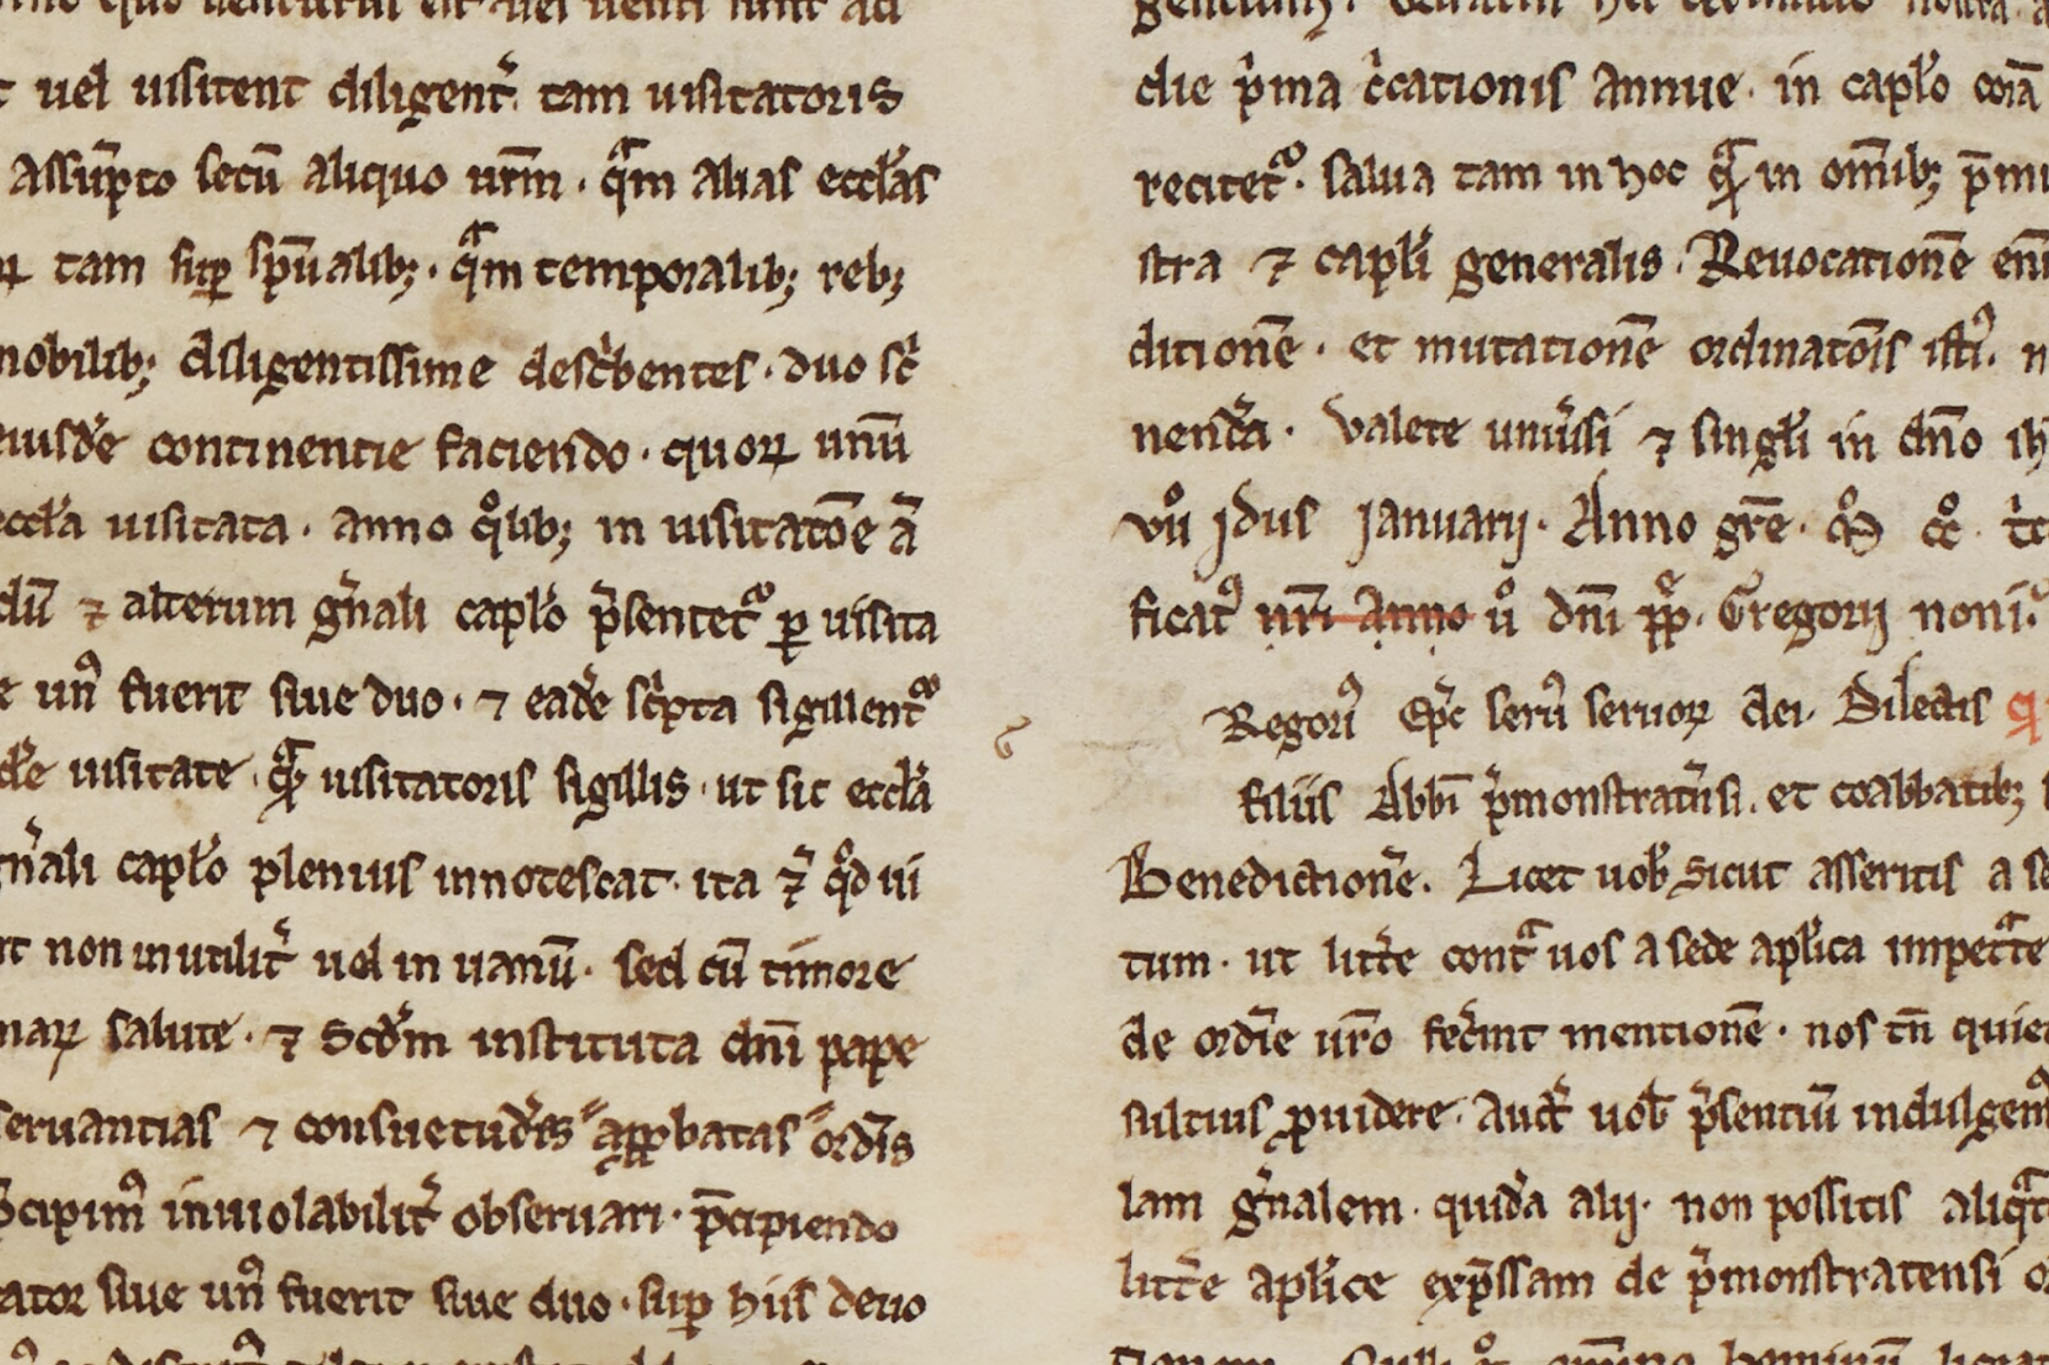 t uel uisitent diligent̉. tam uisitatoris
assūpto secū aliquo ur̄m. qᵃm alias eccl̉as
tam sup̱ sp̄ualib; . qᵃm temporalib; reb;
mobilib; diligentissime desc̉bentes. duo sc̉
eiusd̉e continentie faciendo. quoꝝ unū
eccl̉a uisitata. anno qͦlib; in uisitatōe ā
dū ⁊ alterum gn̉ali capl̉o p̉sentet᷑ ꝑ uisita
e unꝰ fuerit siue duo. ⁊ ead̉e sc̉pta sigillent᷑
uisitate. qᵃꝫ uisitatoris sigillis. ut sic eccl̉a
gn̉ali capl̉o plenius innotescat. ita ⁊̉ qͦd ui
non inutilit̉ uel in uanū. sed cū timore
naꝝ salute. ⁊ Scd̉m instituta dn̄i pape
seruantias ⁊ consuetud̉īes "aꝓbatas" ordīs
p̄cipimꝰ inuiolabilit̉ obseruari. p̄cipiendo
tator siue unꝰ fuerit siue duo. sup̱ hiis deuo
die p̉ma c̉cationis annue. in capl̉o corā
recitet᷑. salua tam in hoc qᵃꝫ in om̄ib; p̄mi
stra ⁊ capl̉i generalis. Reuocationē eni
ditionē. et mutationē ordinatōis istiꝰ. n
nend̉a. Valete uniủsi ⁊ singl̉i in dn̄o ih
vııͦ jdus januarij. Anno gr̄e. Mͦ ccͦ. t̉c
ficatꝰ nr̄i Anno uͦ dn̄i pp̄. Gregorij noni.
Regoriꝰ Ep̄c seruꝰ seruoꝝ dei. Dilectis
filiis Abbī p̉monstrat̉nsi. et coabbatib;
Benediction̉e. Licet uob̉ sicut asseritis a se
tum. ut litt̉e contᵃ uos a sede apl̉ica impetᵃte
de ordīe ur̄o fec̉int mentionē. nos tn̄ quiet
sultius ꝓuidere. auct̉ uob̉ p̉sentiū indulgemꝰ
lam gn̉alem. quid̉a alij. non possitis aliqᵃt
litt̉e apl̉ice exp̄ssam de p̉monstratensi or